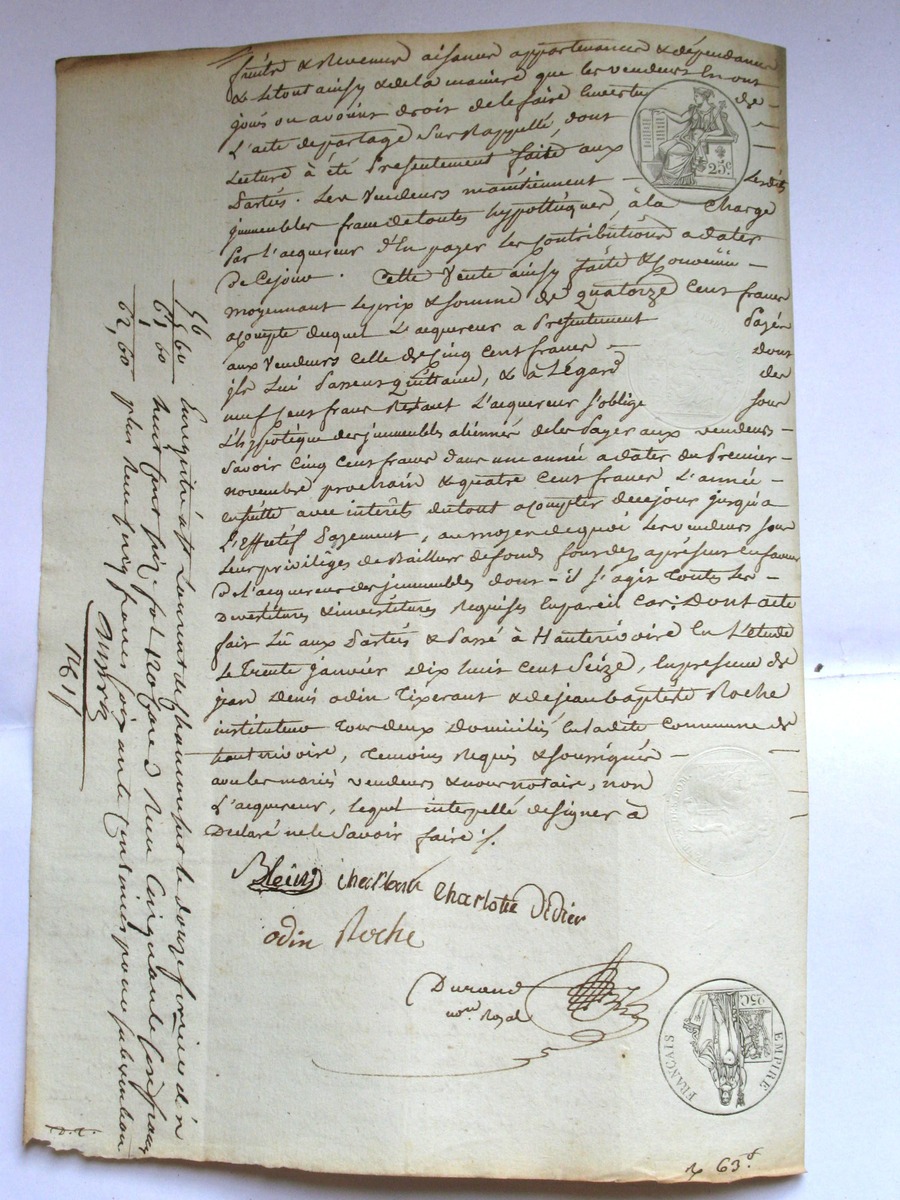 fruits & Revenus aisances appartenances & dépendances
& le tout ainsy & de la maniere que les vendeurs en ont
jouis ou avoient droit de le faire en vertu de
L'acte de partage Sus Rappellé, dont
Lecture à été Presentement faite aux
Parties. Les Vendeurs maintiennent Lesdits
jmmeubles franc de toutes hypothéques, à la Charge
Par l'acquereur d'En payer les Contributions a dater
De Ce jour. Cette Vente ainsy faite & Convenue
moyennant Le prix & somme de quatorze Cent francs
acompte duquel L'acquereur a Presentement Payée
aux Vendeurs celle de Cinq Cent francs dont
jls Lui Passent Quittance, & à L'égard des
neuf Cent francs Restant L'acquereur s'oblige sous
L'hypotéque des jmmeubles aliennés de les Payer aux vendeurs
Savoir Cinq Cent francs dans une année a dater du Premier
novembre prochain & quatre Cent francs L'année
ensuitte avec interêts du tout a compter de ce jour jusqu'a
L'Effectif Payement, au moyen de quoi Les vendeurs sous
Leurs priviléges de Bailleurs de fonds
De l'acquereur des jmmeubles dont il s'agit Toutes les
Devestitures & investitures Requises en pareil Cas: Dont acte
fait Lû aux Parties & Passé à Hauterivoire En L'étude
Le Trente Janvier Dix huit Cent Seize, En presence de
jean Denis odin Tixerant & de jean baptiste Roche
instituteur Tous deux Domiciliés en ladite Commune de
hauterivoire, Temoins Requis & soussignés
avec les mariés vendeurs & nous notaire, non
L'acquereur, lequel interpellé de signer à
Déclaré ne le Savoir faire ./.
Charlotte Didier
odin Roche
Durand
no.re Royal
25.C
EMPIRE FRANÇAIS
25C
63.
56
5,60
61,60
62,60
Enregistré à St Laurent de Chamousset le douze février
neuf Cinquante six francs
plus soixante centimes pour subvention